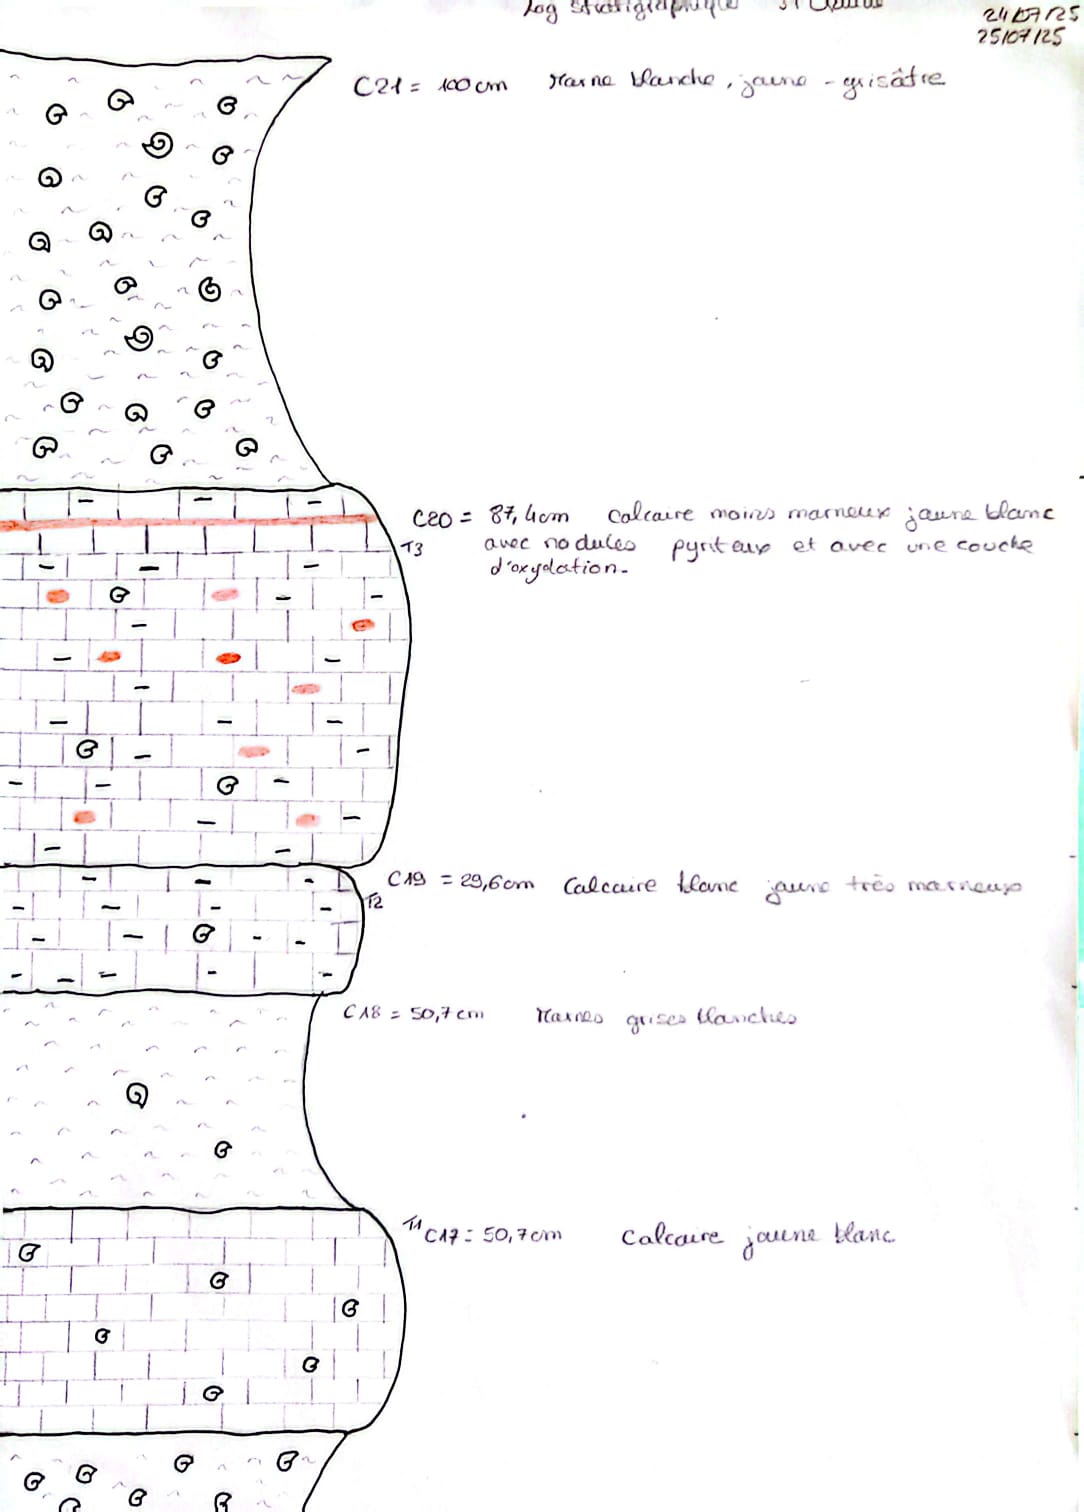 Log Stratigraphique St
24/07/25
25/07/25
C21 = 100cm Marne blanche, jaune - grisâtre
C20 = 87,4cm Calcaire moins marneux jaune blanc
T3 avec nodules pyriteux et avec une couche
d'oxydation.
C19 = 29,6cm Calcaire blanc jaune très marneux
T2
C18 = 50,7cm Marnes grises blanches
T1 C17 = 50,7cm Calcaire jaune blanc